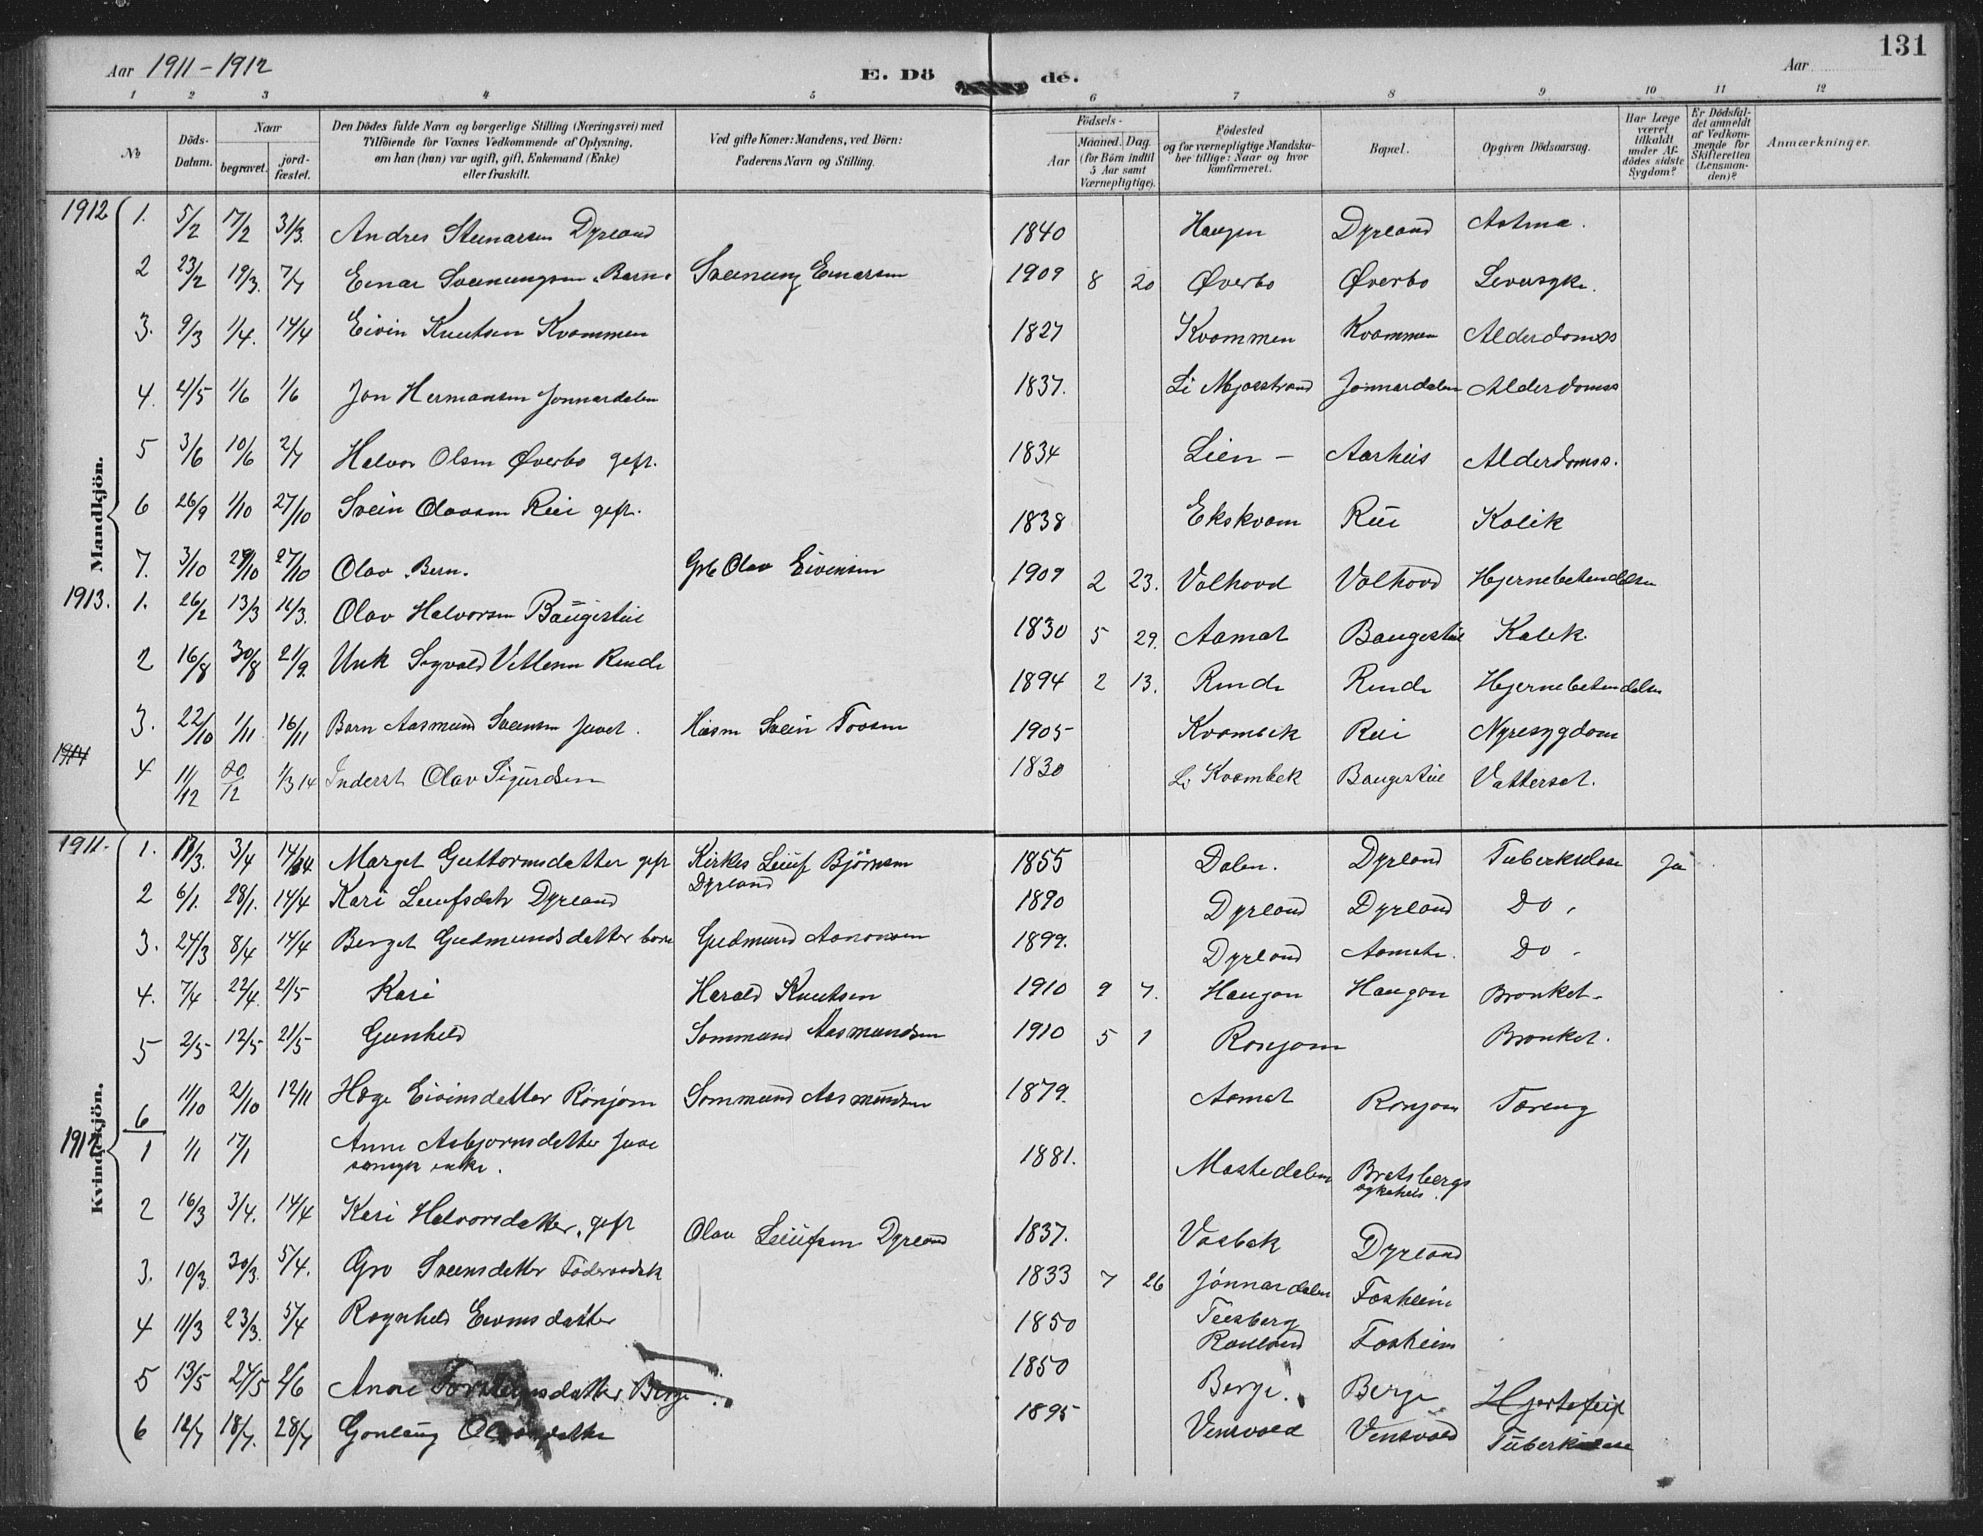 Aar 1911-1912 E. Dö de. Aar 131
1 2 3 4 5 6 7 8 9 10 11 12
№ Döds-Datum. Naar begravet. jord-fæstet. Den Dödes fulde Navn og borgerlige Stilling (Næringsvei) med Tilföiende for Voxnes Vedkommende af Oplysning, om han (hun) var ugift, gift, Enkemand (Enke) eller fraskilt. Ved gifte Koner: Mandens, ved Börn: Faderens Navn og Stilling. Födsels- Aar Maaned. Dag. (for Börn indtil 5 Aar samt Værnepligtige). Födested og for værnepligtige Mandskaber tillige: Naar og hvor konfirmeret. Bopæl. Opgiven Dödsaarsag. Har Læge været tilkaldt under Afdödes sidste Sygdom? Er Dödsfaldet anmeldt af Vedkommende for Skifteretten (Lensmanden)? Anmærkninger.
Mandkjön.
1912 1. 5/2 17/2 31/3. Andres Steinarsen Dyrland 1840 Haugen Dyrland Astma.
2 23/2 19/3. 7/7 Einar Sveinungsen Barn. Sveinung Einarsen 1909 8 20 Øverbo Øverbo Leversyke.
3. 9/3 1/4. 14/4 Eivin Knutsen Kvammen 1827 Kvammen Kvammen Alderdomss
4. 4/5 1/6 1/6 Jon Hermansen Jonnardalen 1837. Li Mjøsstrand Jønnardalen Alderdomss
5 3/6 10/6 2/7 Halvor Olsen Øverbo gift. 1834 Lien - Aarhus Alderdomss.
6 26/9 1/10 27/10 Svein Olavsen Rui gift. 1838 Ekskvam Rui Kolik
7. 3/10 29/10 27/10 Olav Barn. Grb Olav Eivinsen 1909 2 23. Valhovd Valhovd Hjernebetendelse
1913. 1. 26/2 13/3 16/3. Olav Halvorsen Baugestul 1830 5 29. Aamot Baugestul Kolik
2 16/8 30/8 21/9. Unk Sigvald Vetlenn Rinde 1894 2 13. Rinde Rinde Hjernebetendelse
3. 22/10 1/11. 16/11 Barn Aasmund Sveinsen Juvet. Husm Svein Tovsen 1905 Kvambek Rui Nyresygdom
1914 4 11/12 20/12 1/3 14 Inderst Olav Sigurdsen 1830 Li Kvambek Baugestul Vattersot.
Kvindekjön.
1911. 1. 17/3. 3/4 14/4 Marget Guttormsdatter gift Kirkes Leiuf Bjørnsen Dyrland 1855 Dalen. Dyrland Tuberkulose Ja
2 6/1. 28/1. 14/4 Kari Leiufsdtr Dyrland 1890 Dyrland Dyrland Do.
3. 24/3 8/4 14/4 Berget Gudmundsdatter barn Gudmund Aanonsen 1899. Dyrland Aamot. Do.
4. 7/4 22/4. 21/5 Kari Harald Knutsen 1910 9 7. Haugan Haugan Bronket.
5 2/5 12/5 21/5 Gunhild Sommund Aasmundsen 1910 5 1 Ronjom Bronket.
6 11/10 21/10 12/11 Hæge Eivinsdatter Ronjom Sommund Aasmundsen 1879. Aamot Ronjom Tæreng
1912 1 1/1 17/1 Anne Asbjornsdatter Juve sinsyk enke. 1881. Mostedalen Bratsbergs sykehus.
2 16/3 3/4. 14/4 Kari Halvorsdatter, gift Olav Leiufsen Dyrland 1837. Vasbek Dyrland
3. 10/3 30/3. 5/4. Gro Sveinsdatter Føderaadsk 1833 7 26 Jønnardalen Foskeim
4 11/3 23/3. 5/4 Ragnhild Eivinsdatter 1850 Teesberg Rauland Foskeim
5 13/5 24/5 2/6 Anne Torsteinsdatter Berge. 1850 Berge. Berge Hjertefeil
6 12/7 18/7. 28/7 Gonlaug Olavsdatter 1895 Vensvold Vensvold Tuberkulose